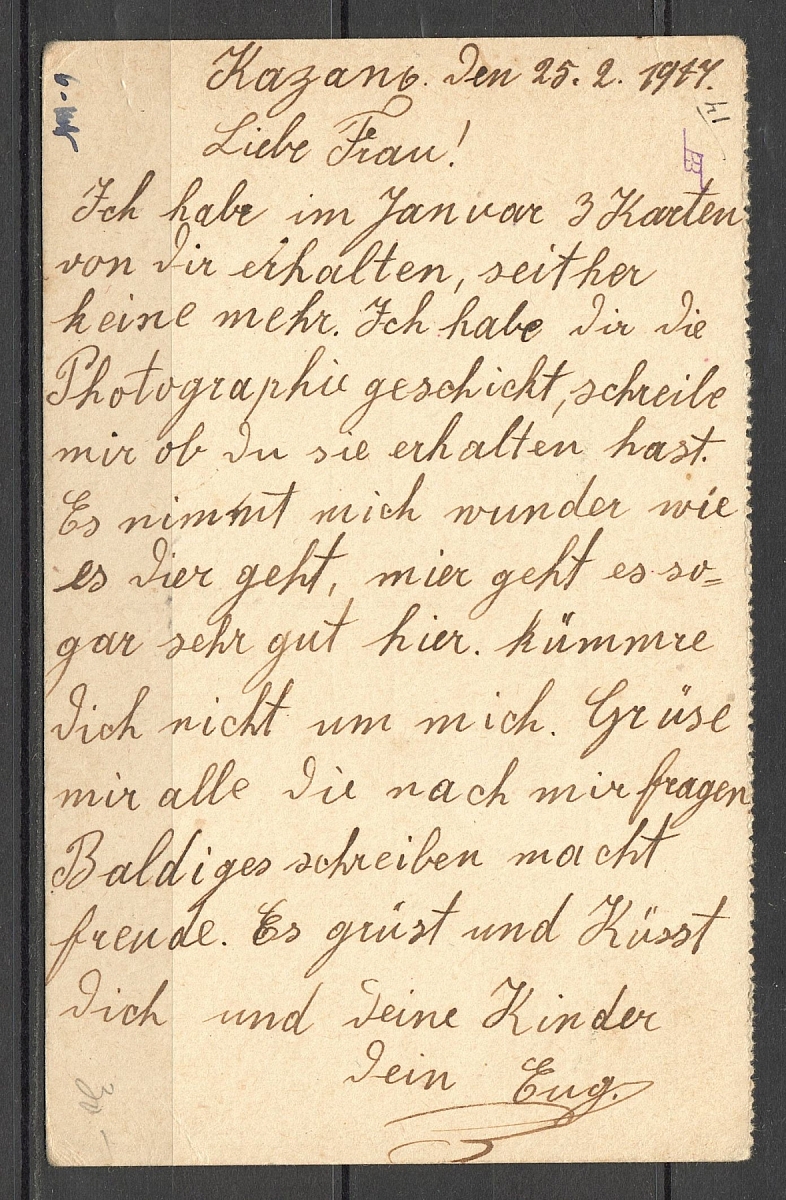 Kazanь. den 25. 2. 1917.
Liebe Frau!
Ich habe im Januar 3 Karten
von dir erhalten, seither
keine mehr. Ich habe dir die
Photographie geschickt, schreibe
mir ob du sie erhalten hast.
Es nimmt mich wunder wie
es dier geht, mier geht es so=
gar sehr gut hier. kümmre
dich nicht um mich. Grüse
mir alle die nach mir fragen
Baldiges schreiben macht
freude. Es grüst und Küsst
dich und deine Kinder
dein Eug.